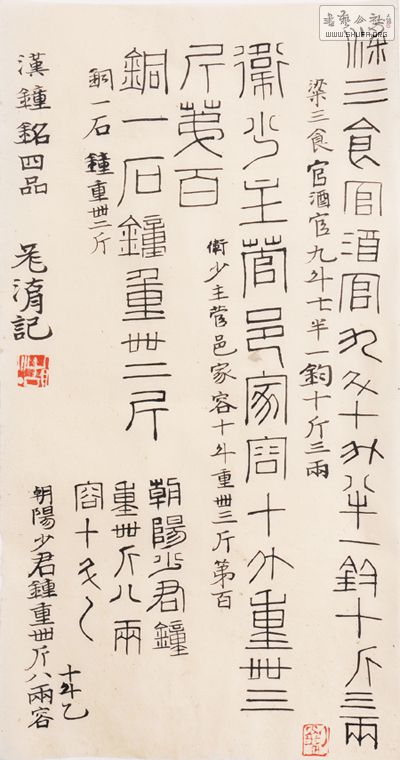 梁三食官酒官九斗十斗半一鈞十斤三兩
梁三食官酒官九斗七半一鈞十斤三兩
衛少主菅邑家容十斗重卌三
斤第百
衛少主菅邑家容十斗重卌三斤第百
銅一石鐘重卌二斤
銅一石 鐘重卌二斤
朝陽少君鐘
重卌斤八兩
容十斗乙
朝陽少君鍾重卌斤八兩容
十斗乙
漢鐘銘四品
記
WWW.SHUFA.ORG